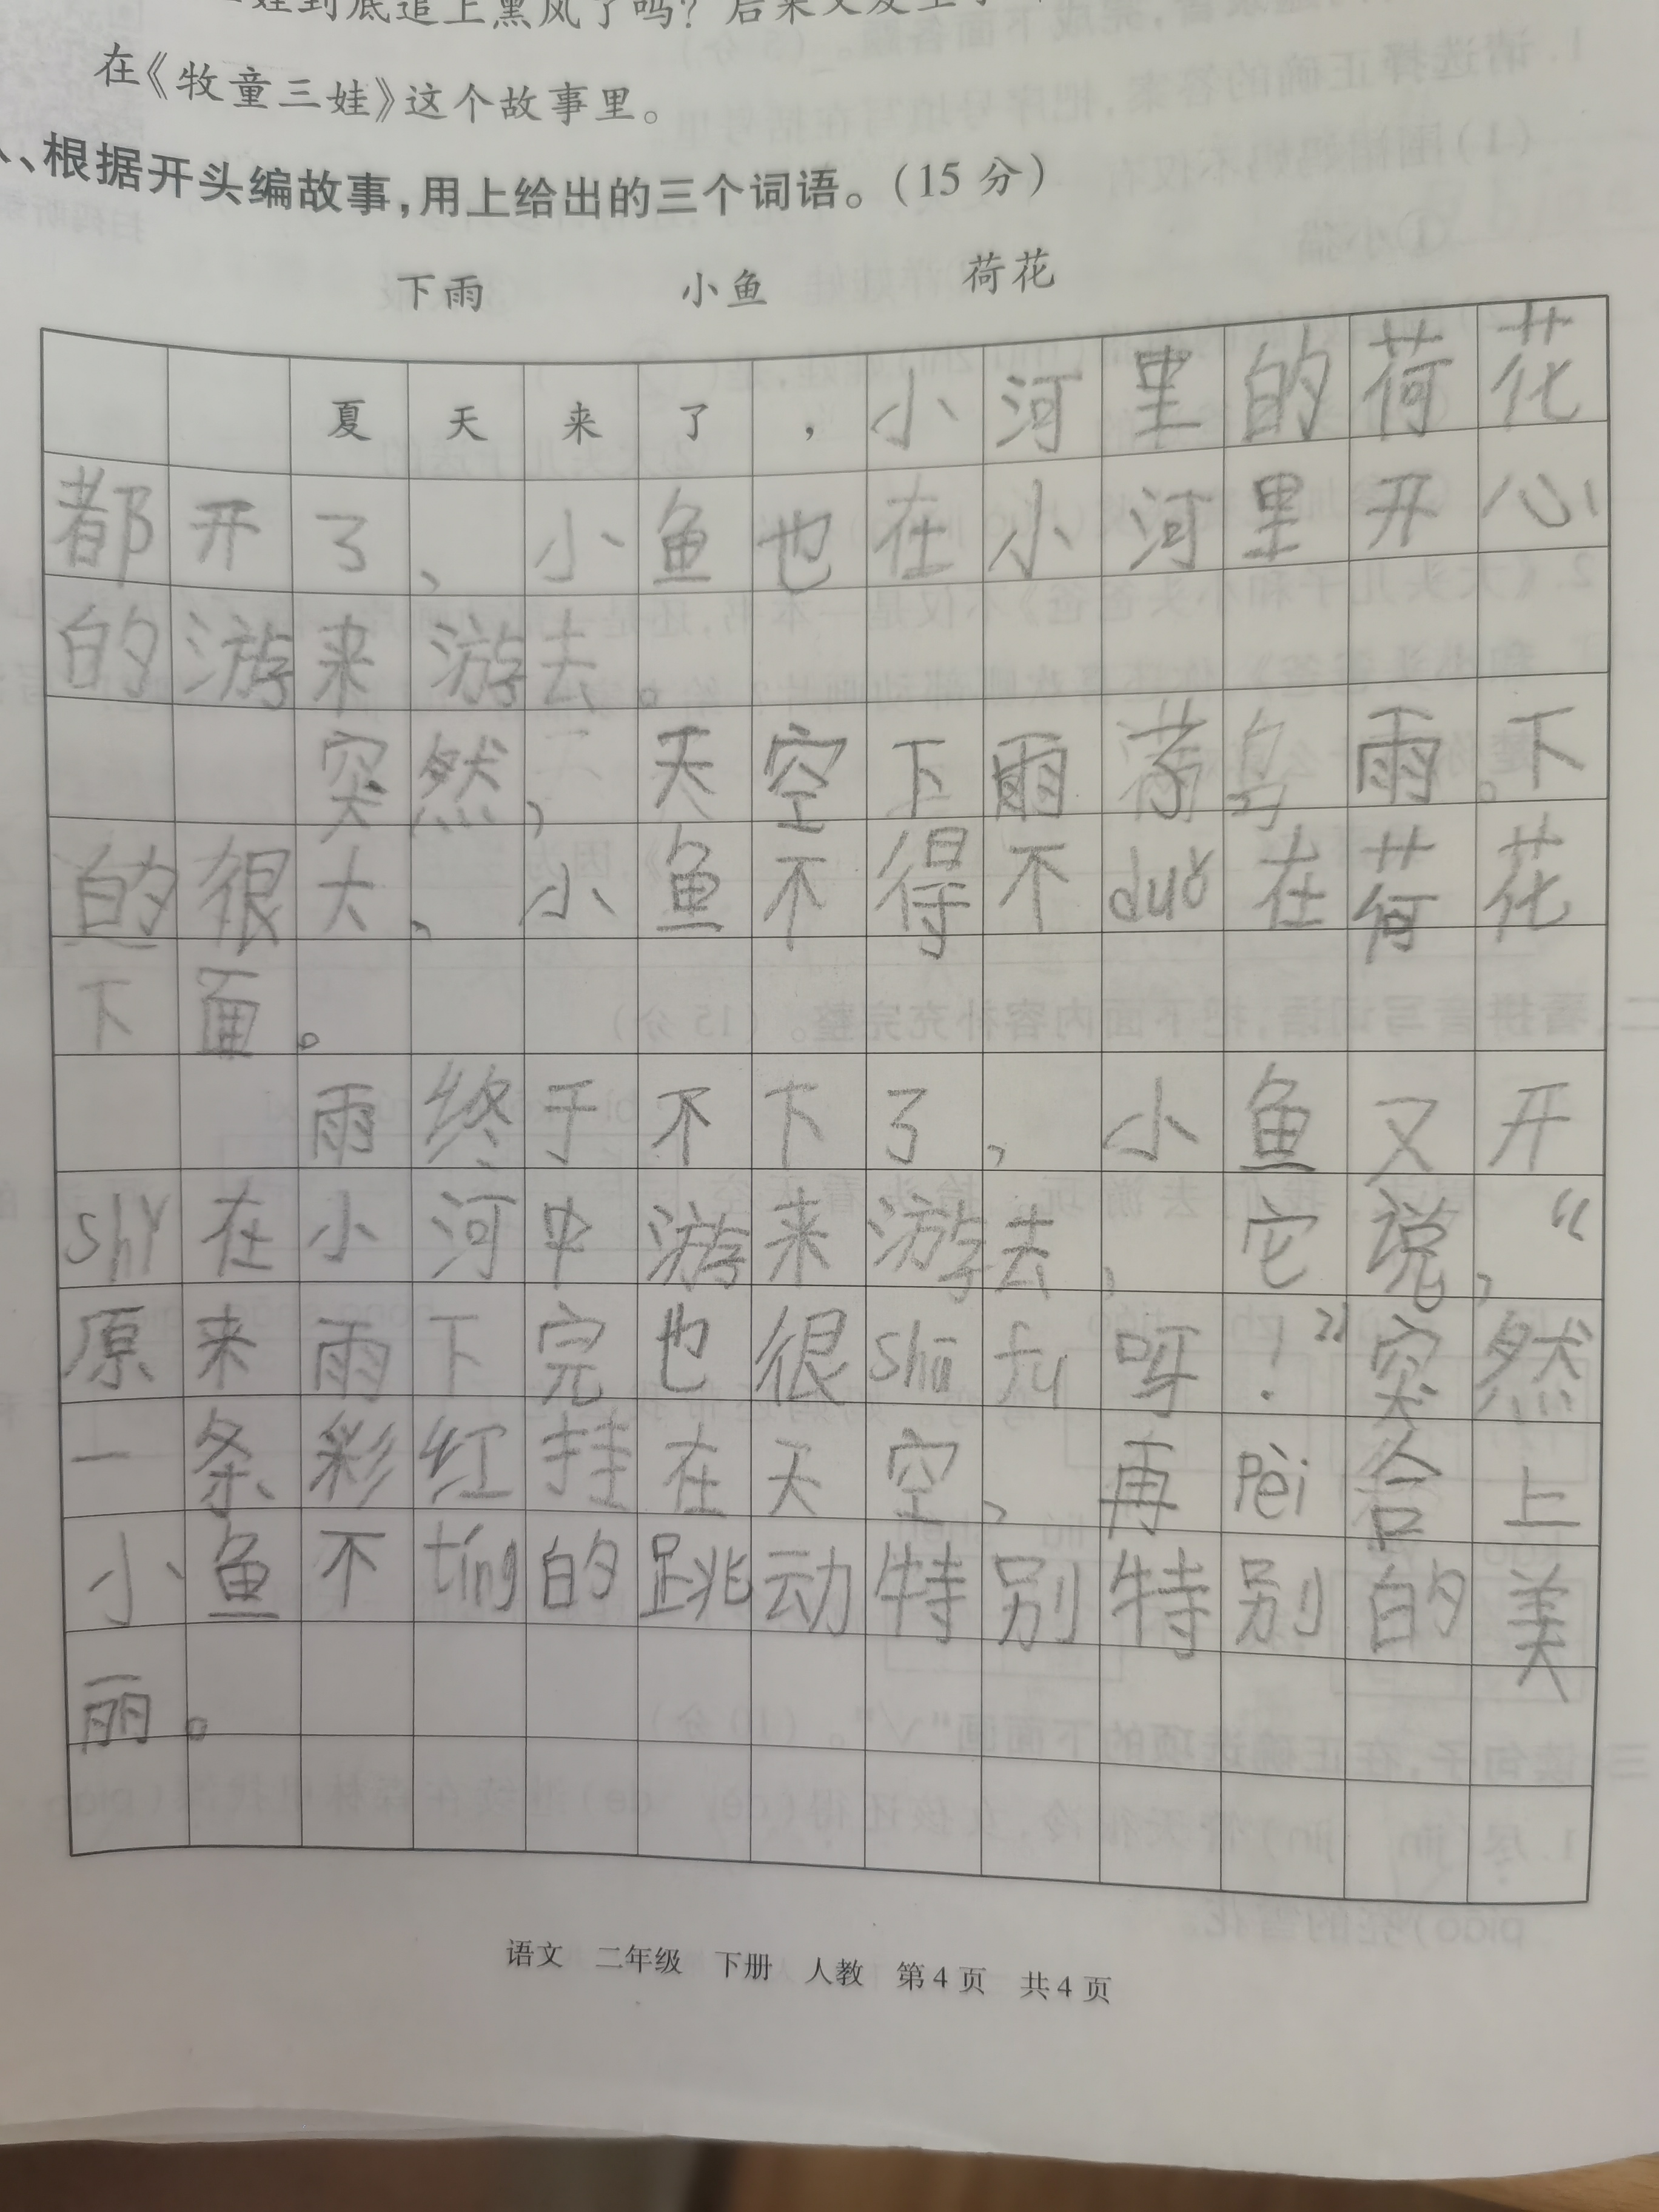 娃到底追上黑风了吗？后来又发生了
在《牧童三娃》这个故事里。
、根据开头编故事，用上给出的三个词语。（15 分）
下雨 小鱼 荷花
夏天来了，小河里的荷花
都开了、小鱼也在小河里开心
的游来游去。
突然，天空下雨雨。下
的很大、小鱼不得不duǒ在荷花
下面。
雨终于不下了，小鱼又开
shǐ在小河中游来游去，它说，“
原来雨下完也很shū fu呀！”突然
一条彩红挂在天空，再Pèi合上
小鱼不tíng的跳动特别特别的美
丽。
语文 二年级 下册 人教 第4页 共4页